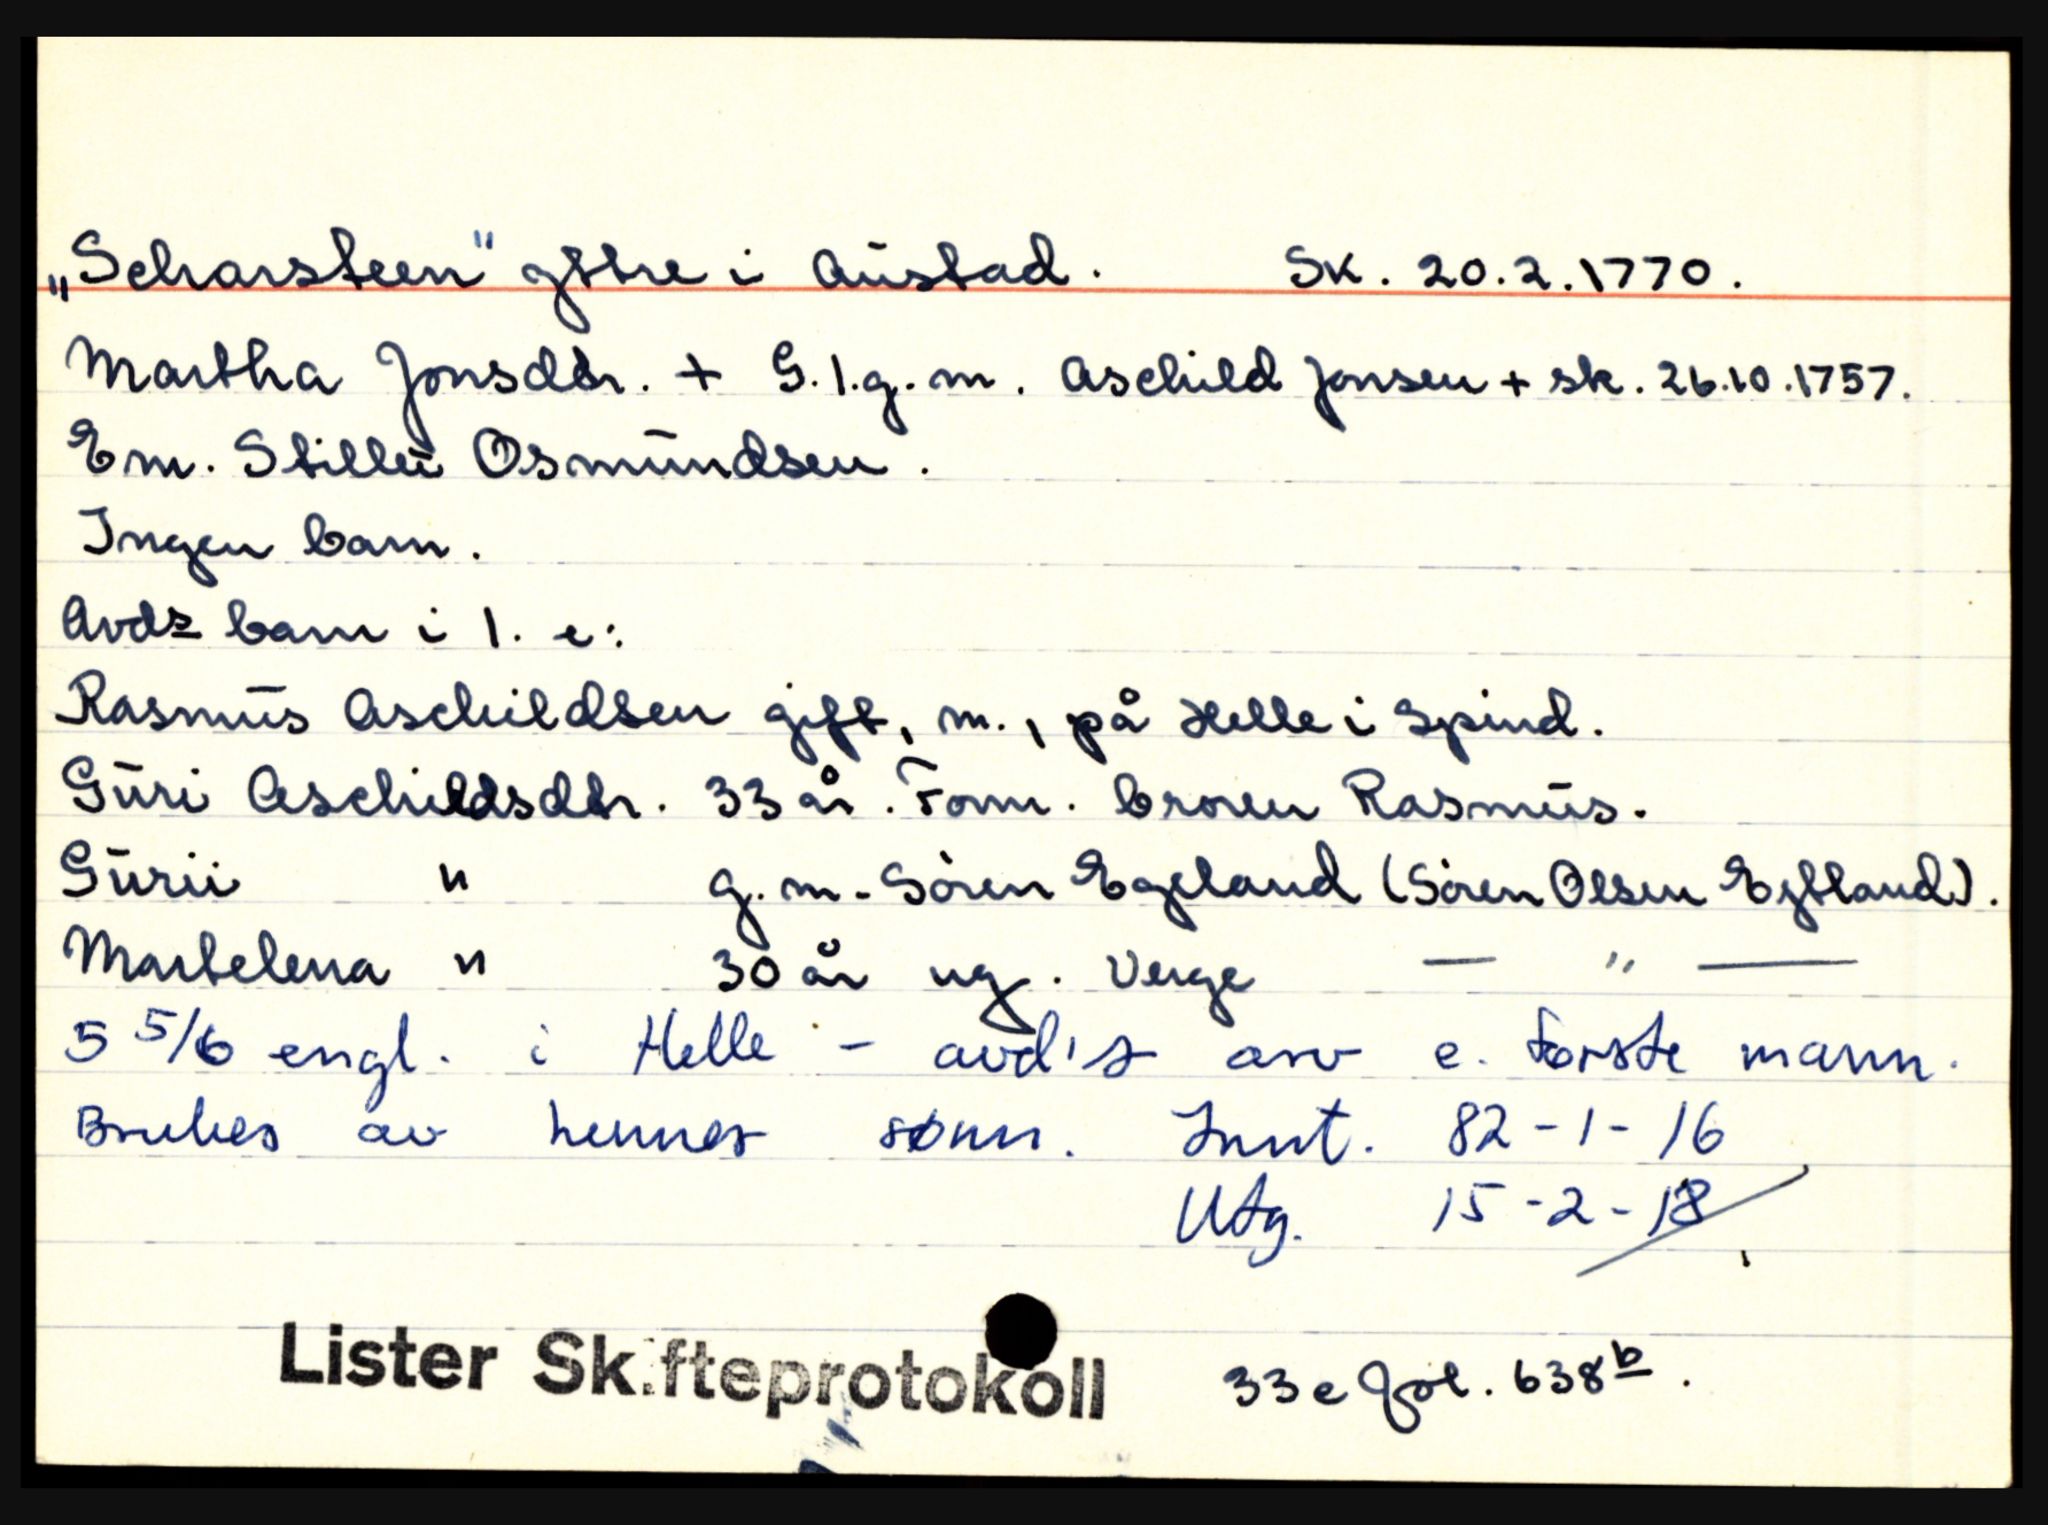 „Scharsteen" yttre i Aūstad. Sk. 20.2.1770.
Martha Jonsdtr. + G.1.g.m. Aschild Jonsen + sk. 26.10.1757.
Em. Stillū Osmūndsen.
Ingen barn.
Avds barn i 1. e:
Rasmūs Aschildsen gift, m., på Helle i Spind.
Gūri Aschildsdtr. 33 år. Form. broren Rasmūs.
Gūrii " g.m. Sören Egeland (Sören Olsen Eytland).
Martelena " 30 år ug. Verge — " —
5 5/6 engl. i Helle - avd's arv e. første mann.
Brukes av hennes sønn. Innt. 82-1-16
Utg. 15-2-18
Lister Skifteprotokoll 33 e fol. 638b.